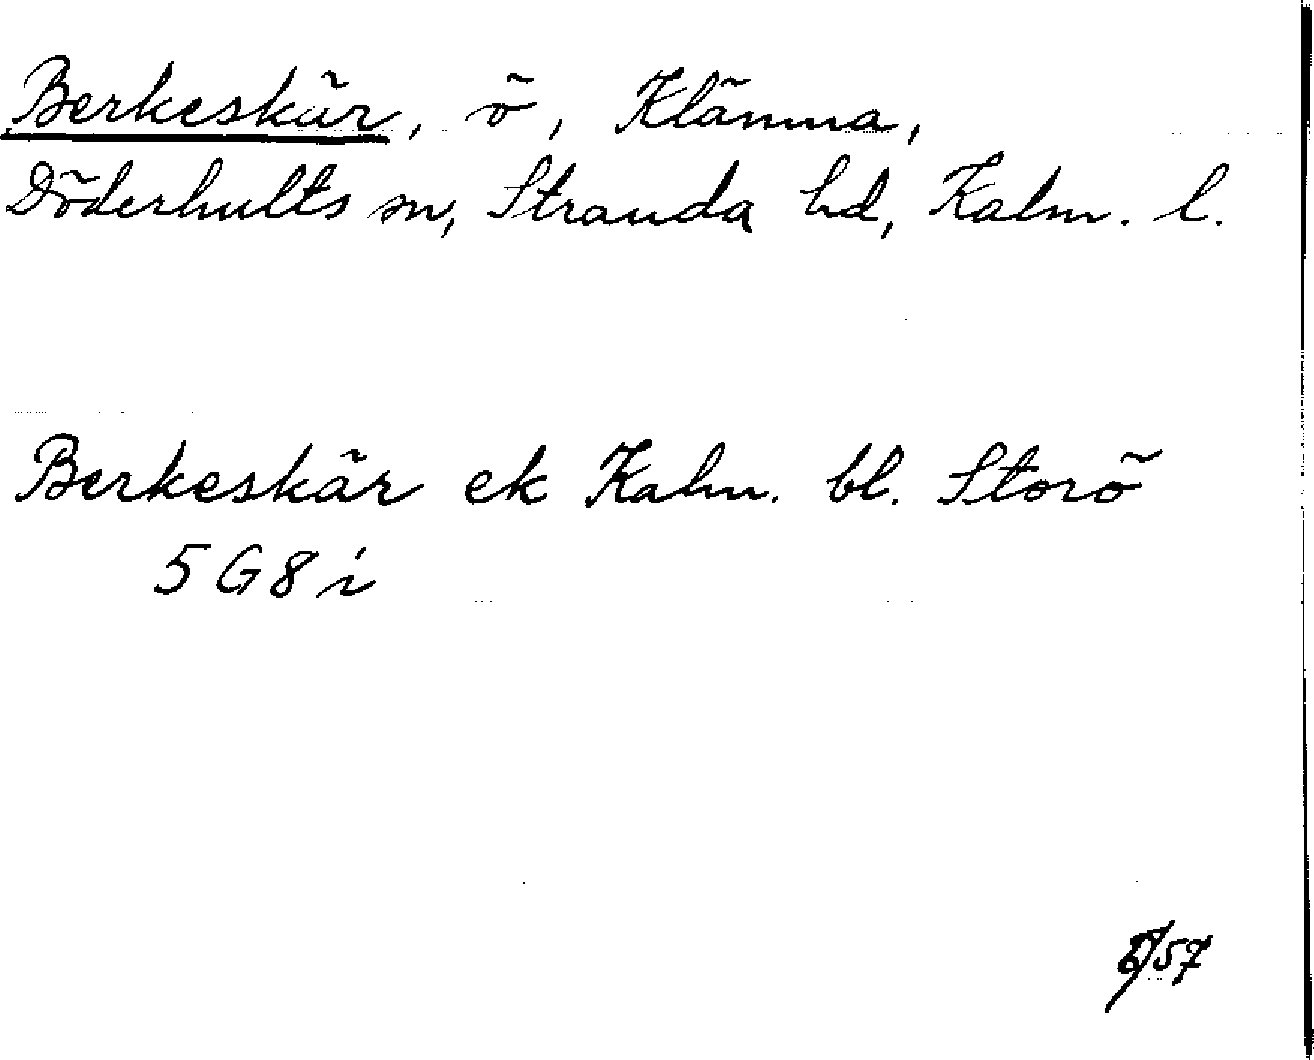 Berkeskär, ö, Klämna,
Döderhults sn, Stranda hd, Kalm. l.
Berkeskär ek Kalm. bl. Storö
5 G 8 i